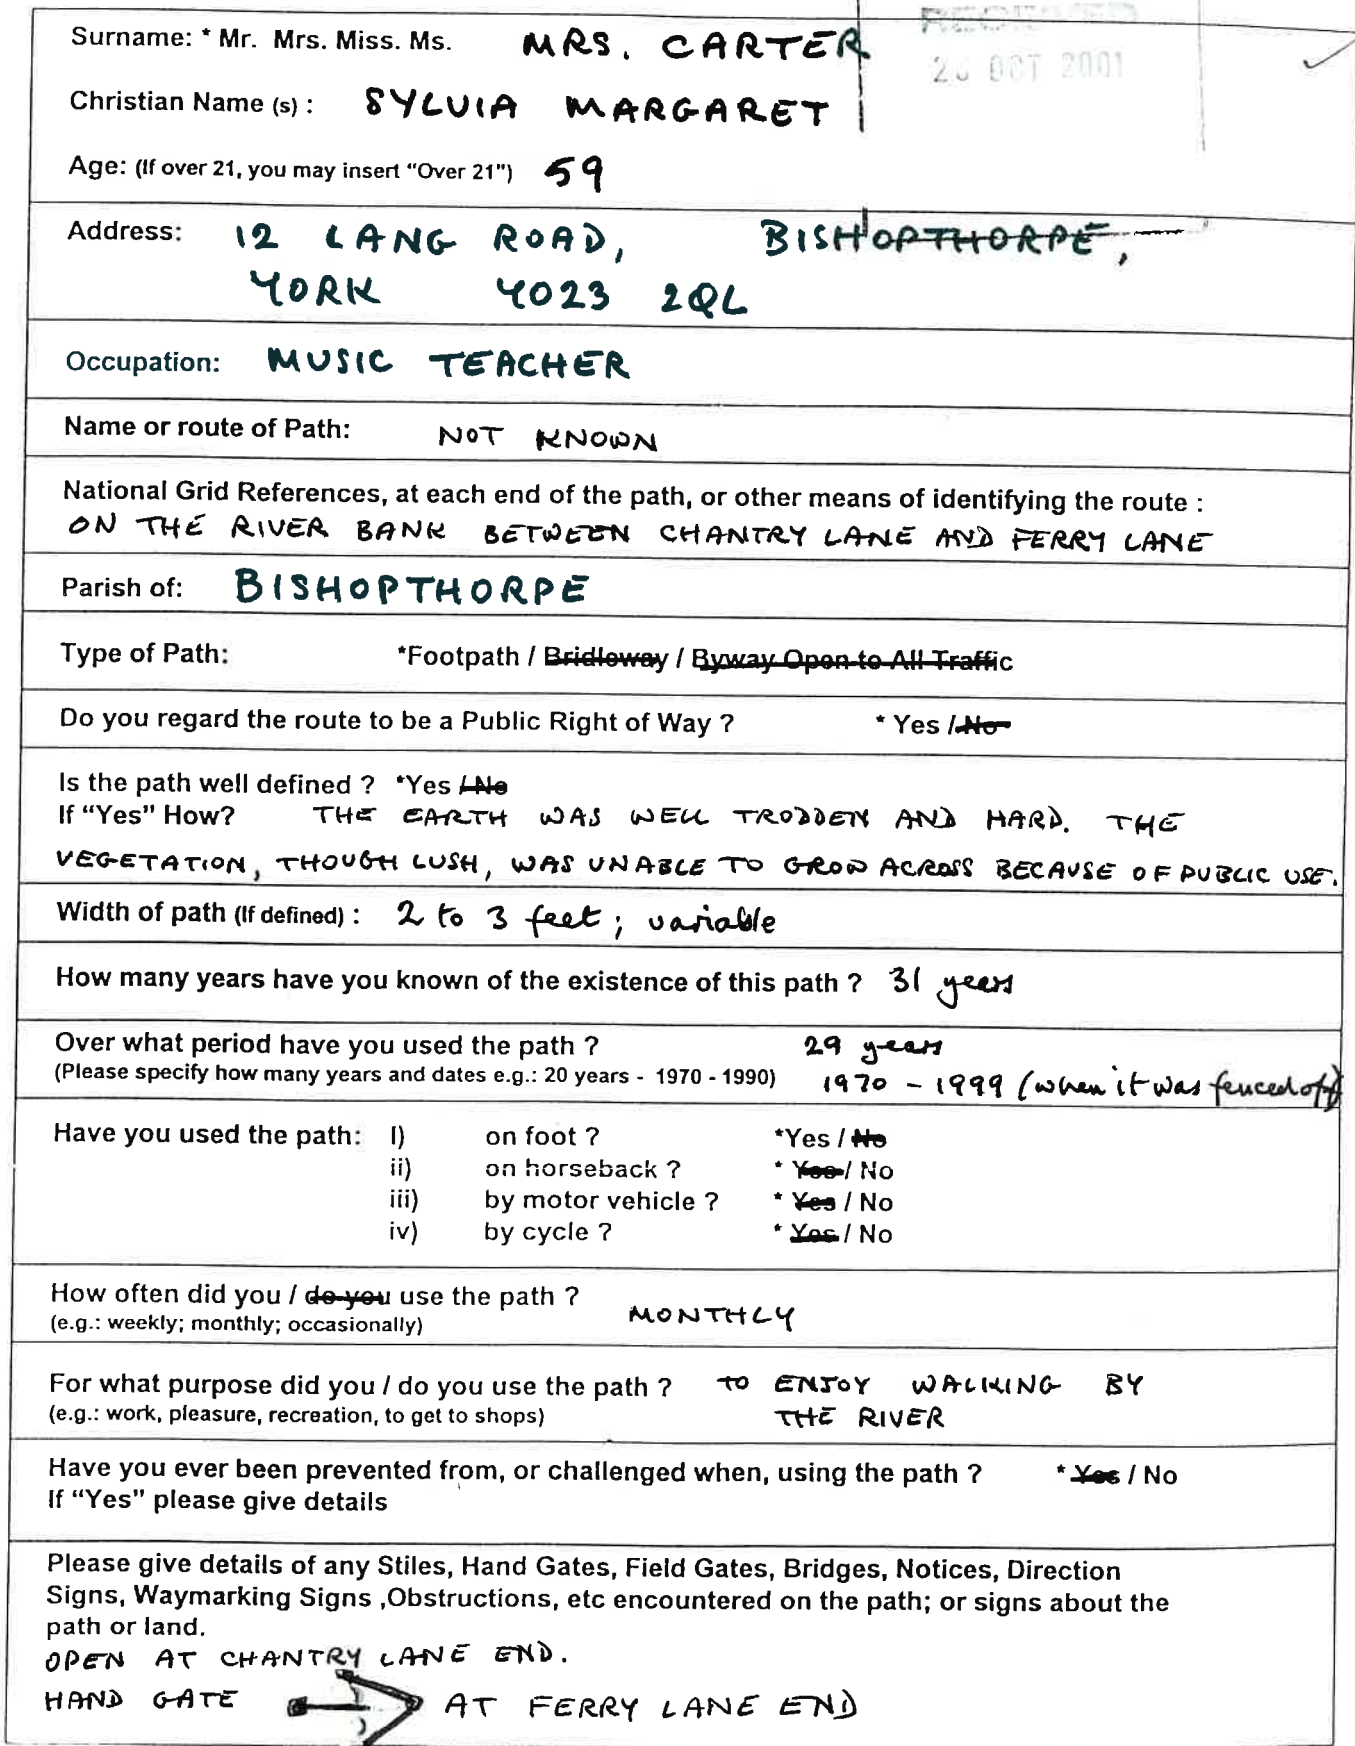 RECEIVED
26 OCT 2001
Surname: * Mr. Mrs. Miss. Ms. MRS. CARTER
Christian Name (s) : SYLVIA MARGARET
Age: (If over 21, you may insert "Over 21") 59
Address: 12 LANG ROAD, BISHOPTHORPE,
YORK YO23 2QL
Occupation: MUSIC TEACHER
Name or route of Path: NOT KNOWN
National Grid References, at each end of the path, or other means of identifying the route :
ON THE RIVER BANK BETWEEN CHANTRY LANE AND FERRY LANE
Parish of: BISHOPTHORPE
Type of Path: *Footpath / Bridleway / Byway Open to All Traffic
Do you regard the route to be a Public Right of Way ? * Yes / No
Is the path well defined ? *Yes / No
If "Yes" How? THE EARTH WAS WELL TRODDEN AND HARD. THE
VEGETATION, THOUGH LUSH, WAS UNABLE TO GROW ACROSS BECAUSE OF PUBLIC USE.
Width of path (If defined) : 2 to 3 feet ; variable
How many years have you known of the existence of this path ? 31 years
Over what period have you used the path ? 29 years
(Please specify how many years and dates e.g.: 20 years - 1970 - 1990) 1970 - 1999 (when it was fenced off)
Have you used the path: I) on foot ? *Yes / No
ii) on horseback ? * Yes / No
iii) by motor vehicle ? * Yes / No
iv) by cycle ? * Yes / No
How often did you / do you use the path ?
(e.g.: weekly; monthly; occasionally) MONTHLY
For what purpose did you / do you use the path ? TO ENJOY WALKING BY
(e.g.: work, pleasure, recreation, to get to shops) THE RIVER
Have you ever been prevented from, or challenged when, using the path ? * Yes / No
If "Yes" please give details
Please give details of any Stiles, Hand Gates, Field Gates, Bridges, Notices, Direction
Signs, Waymarking Signs ,Obstructions, etc encountered on the path; or signs about the
path or land.
OPEN AT CHANTRY LANE END.
HAND GATE AT FERRY LANE END